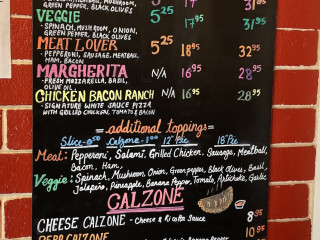 SPINACH, MUSHROOM,
GREEN PEPPER, BLACK OLIVES 17 31⁹⁵
VEGGIE 5²⁵ 17⁹⁵ 31⁹⁵
-SPINACH, MUSHROOM, ONION,
GREEN PEPPER, BLACK OLIVES
MEAT LOVER 5²⁵ 18⁹⁵ 32⁹⁵
- PEPPERONI, SAUSAGE, MEATBALL,
HAM, BACON
MARGHERITA N/A 16⁹⁵ 28⁹⁵
-FRESH MOZZARELLA, BASIL,
OLIVE OIL
CHICKEN BACON RANCH N/A 16⁹⁵ 28⁹⁵
- SIGNATURE WHITE SAUCE PIZZA
WITH GRILLED CHICKEN, TOMATO & BACON
=additional toppings=
Slice- calzone- 12"Pie 18"Pie
Meat: Pepperoni, Salami, Grilled Chicken, Sausage, Meatball,
Bacon, Ham,
Veggie: Spinach, Mushroom, Onion, Green pepper, Black Olives, Basil,
Jalapeño, Pineapple, Banana Pepper, Tomato, Artichoke, Garlic
CALZONE
CHEESE CALZONE - Cheese & Ricotta Sauce 8⁹⁵
CALZONE 10⁹⁵